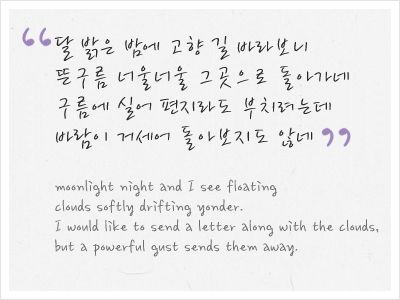 “달 밝은 밤에 고향 길 바라보니
뜬구름 너울너울 그곳으로 돌아가네
구름에 실어 편지라도 부치려는데
바람이 거세어 돌아보지도 않네”
moonlight night and I see floating
clouds softly drifting yonder.
I would like to send a letter along with the clouds,
but a powerful gust sends them away.